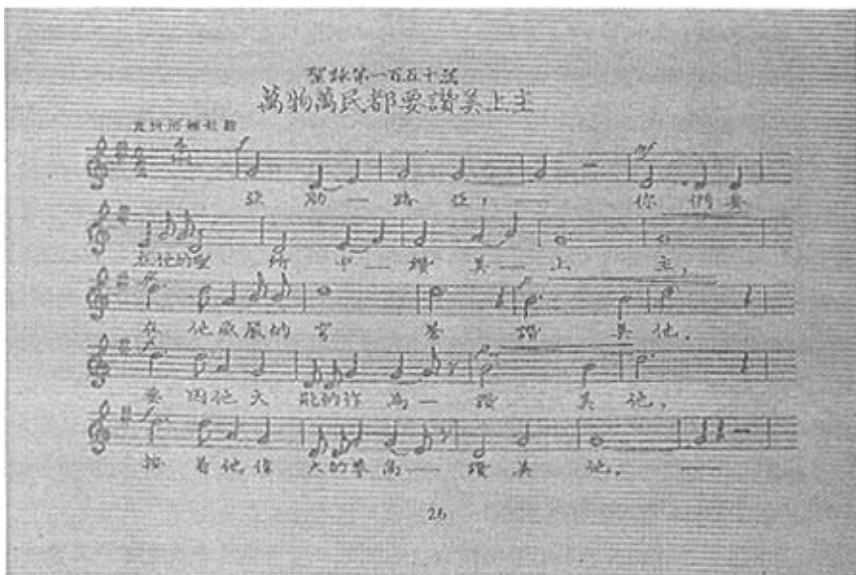 聖詠第一百五十篇
萬物萬民都要讚美上主
f mf
亞肋—路亞,— 你們要
在他的聖所中—讚美—上主,
在他威嚴的穹蒼讚美他。
要因他大能的作為—讚美他,
按著他偉大的崇高—讚美他。—
26